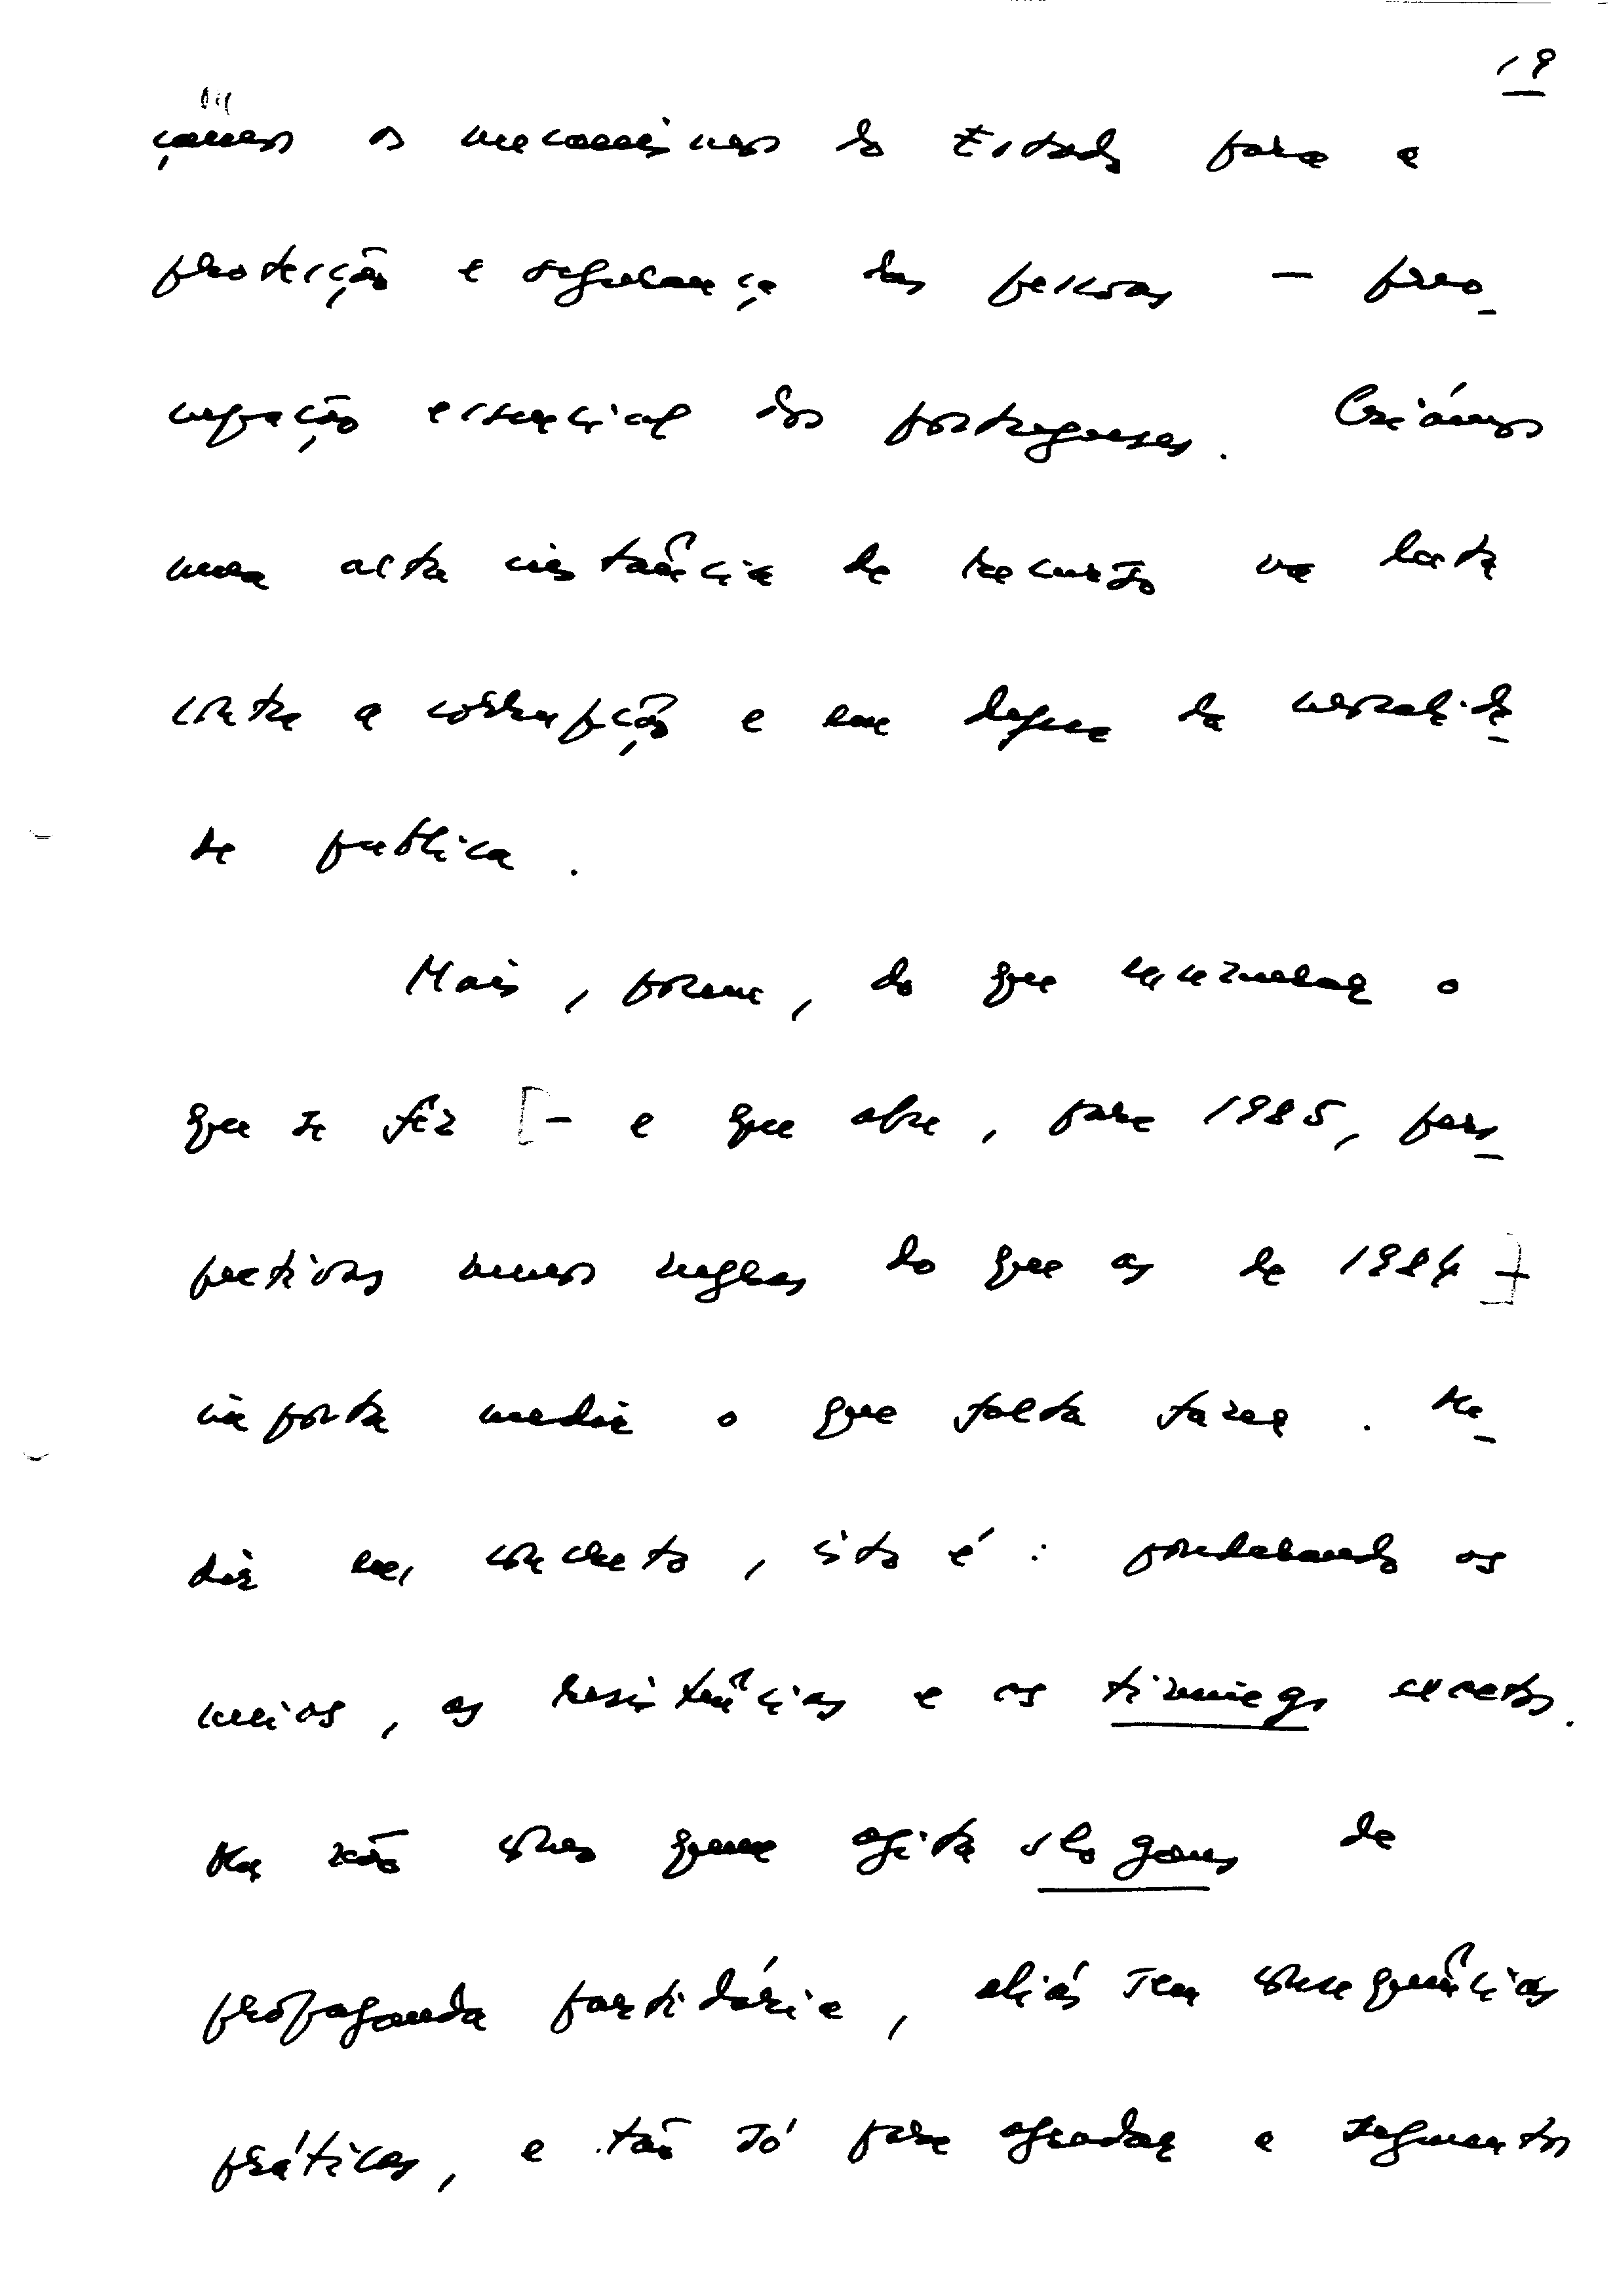 19
çamos os mecanismos do Estado para a
protecção e segurança das pessoas — preo-
cupação essencial dos portugueses. Criámos
uma alta instância de recurso na luta
contra a corrupção e em defesa da moralida-
de publica.
Mais, porem, do que rememorar o
que se fêz [— e que abre, para 1985, pers-
pectivas menos negras do que as de 1984 —]
importa medir o que falta fazer. Me-
dir em concreto, isto é: ponderando os
meios, as resistências e os timings exactos.
E não como quem agita slogans de
propaganda partidária, aliás sem consequências
práticas, e tão só para agradar a segmentos